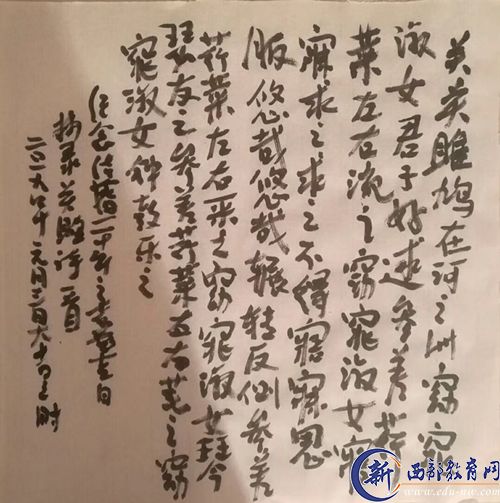 关关雎鸠在河之洲窈窕
淑女君子好逑参差荇
菜左右流之窈窕淑女寤
寐求之求之不得寤寐思
服悠哉悠哉辗转反侧参差
荇菜左右采之窈窕淑女琴
瑟友之参差荇菜左右芼之窈
窕淑女钟鼓乐之
二十年之
抄录关雎诗一首
二〇一九年十二月
新 西部教育网
www.edu-nw.com